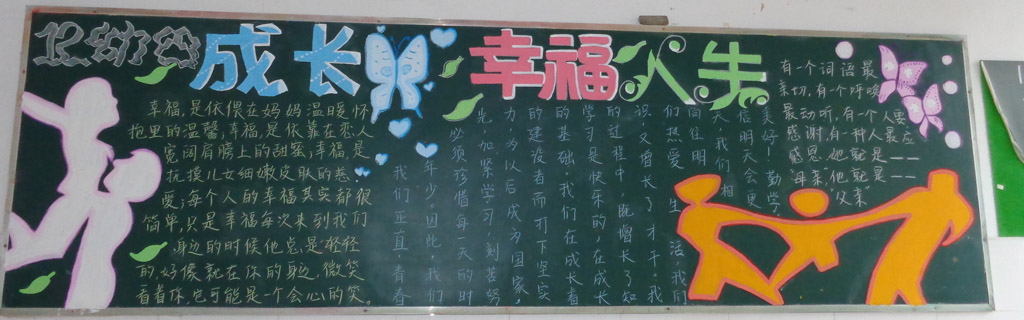 成长 幸福人生
幸福,是依偎在妈妈温暖怀
抱里的温馨;幸福,是依靠在恋人
宽阔肩膀上的甜蜜;幸福,是
抚摸儿女细嫩皮肤的慈
爱;每个人的幸福其实都很
简单,只是幸福每次来到我们
身边的时候他总是轻轻
的,好像就在你的身边,微笑
看着你,也可能是一个会心的笑。
我们正直青春
年少,因此,我们
必须珍惜每一天的时
光,加紧学习,刻苦努
力,为以后成为国家
的建设者而打下坚实
的基础。我们在成长着
学习是快乐的,在成长
的过程中,既增长了知
识,又增长了才干。我
们热爱生活,我们
向往明
天,我们相
信明天会更
美好!勤学,
有一个词语最
亲切,有一个呼唤
最动听,有一个人要
感谢,有一种人最应
感恩,她就是——
“母亲”,他就是——
“父亲”